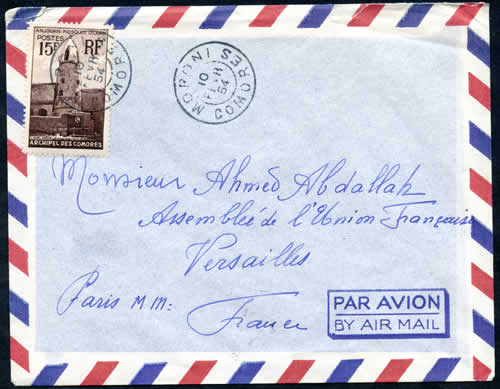 ANJOUAN MOSQUÉE D'OUANI
15F POSTES RF
ARCHIPEL DES COMORES
MORONI
10
FEVR
54
COMORES
MORONI
10
FEVR
54
COMORES
Monsieur Ahmed Abdallah
Assemblée de l'Union Française
Versailles
Paris
France
PAR AVION
BY AIR MAIL